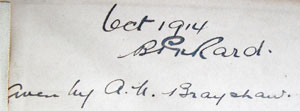 Oct 1914
given by A. N. Brayshaw.